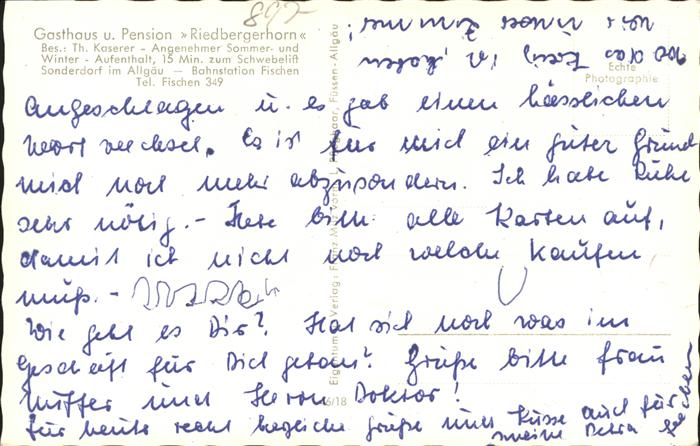 897-
Gasthaus u. Pension »Riedbergerhorn«
Bes.: Th. Kaserer - Angenehmer Sommer- und
Winter - Aufenthalt, 15 Min. zum Schwebelift
Sonderdorf im Allgäu — Bahnstation Fischen
Tel. Fischen 349
Echte
Photographie
angeschlagen u. es gab einen hässlichen
Wortwechsel. Es ist für mich ein guter Grund
mich noch mehr abzusondern. Ich habe Ruhe
sehr nötig. - Hebe bitte alle Karten auf,
damit ich nicht noch welche kaufen
muß. -
Wie geht es Dir? Hat sich noch was im
Geschäft für Dich getan? Grüße bitte Frau
und Herrn Doktor!
Für heute recht herzliche Grüße und Küsse auch für
Deine Petra
6/18